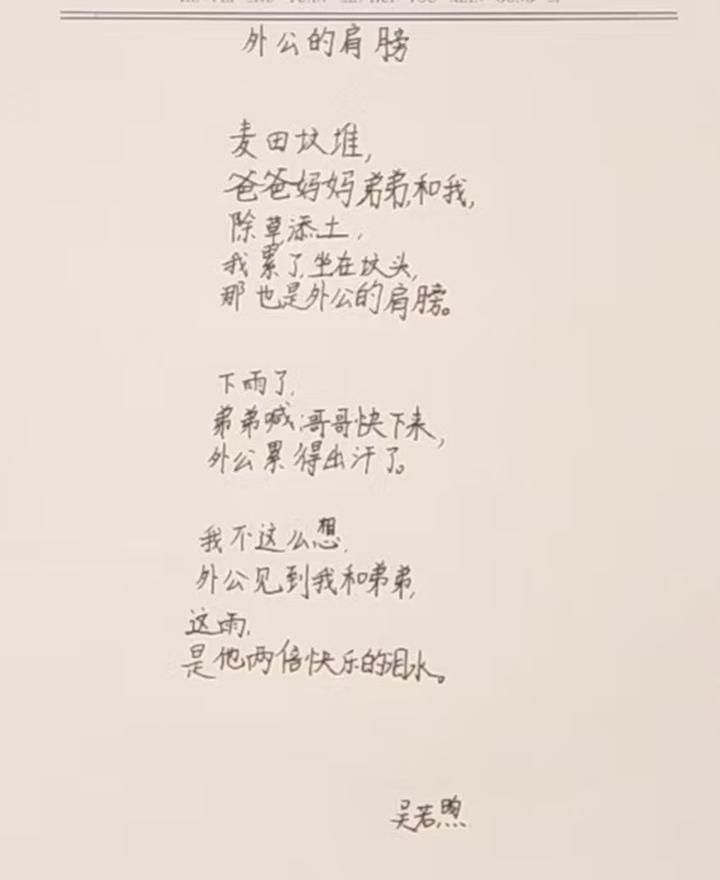 外公的肩膀
麦田坟堆，
爸爸妈妈弟弟，和我，
除草添土，
我累了，坐在坟头，
那也是外公的肩膀。
下雨了，
弟弟喊：哥哥快下来，
外公累得出汗了。
我不这么想，
外公见到我和弟弟，
这雨，
是他两倍快乐的泪水。
吴若煦